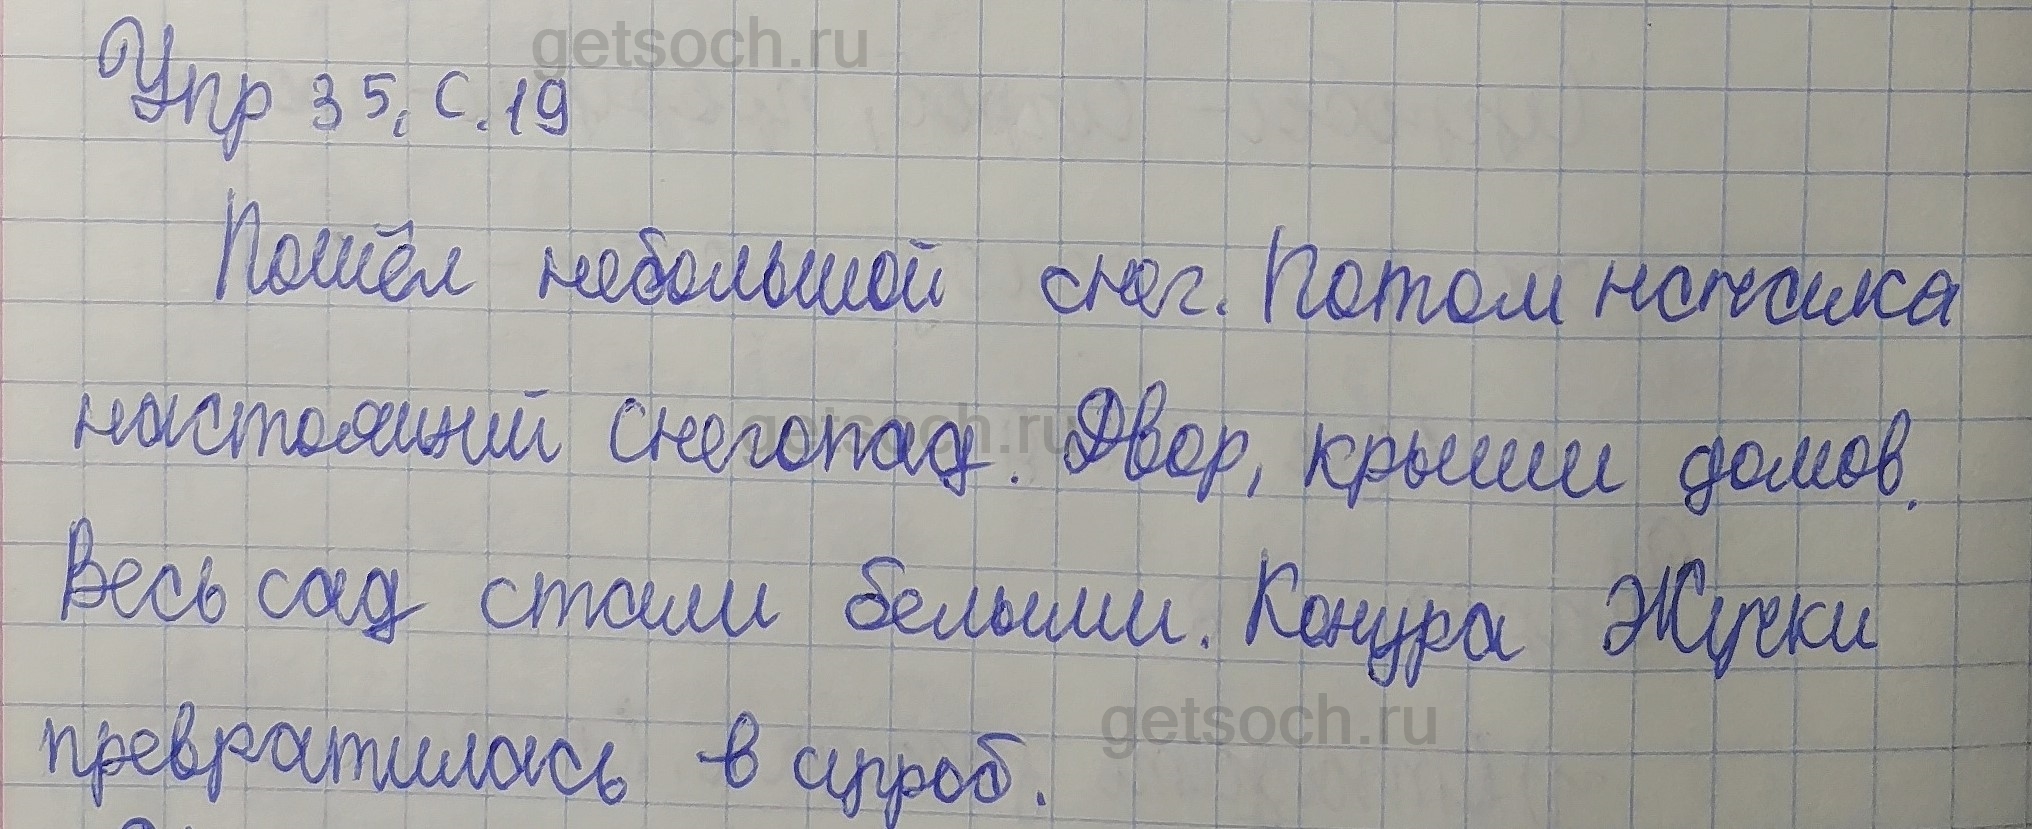 getsoch.ru
Упр 35, с. 19
Пошёл небольшой снег. Потом начался
настоящий снегопад. Двор, крыши домов.
getsoch.ru
Весь сад стали белыми. Конура Жучки
getsoch.ru
превратилась в сугроб.